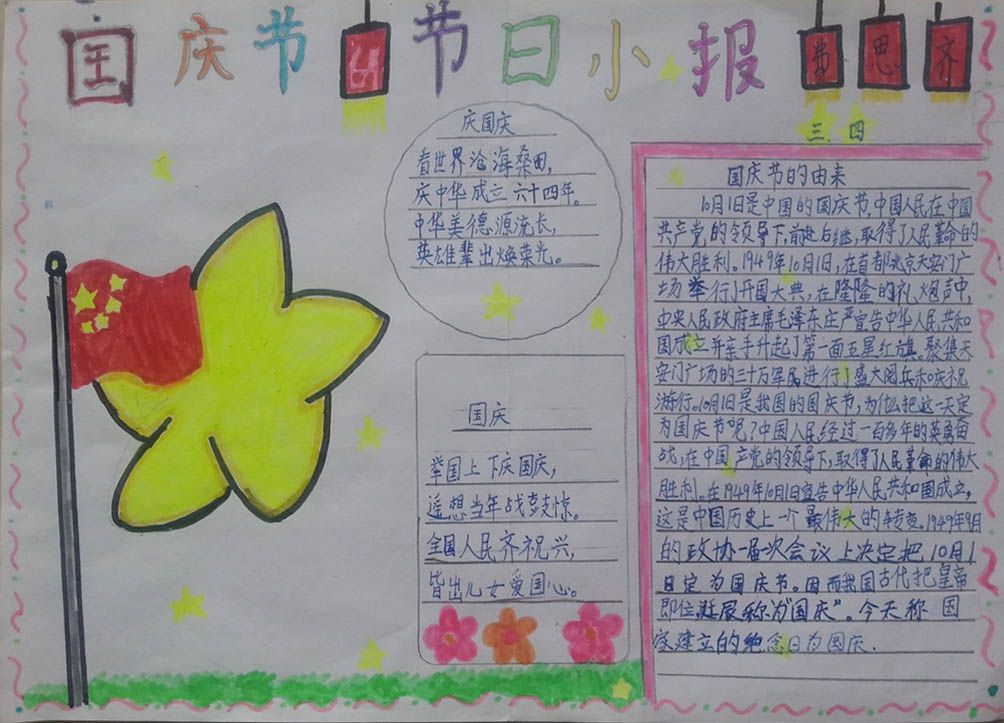 国庆节 节日小报
思齐
三、四
庆国庆
看世界沧海桑田,
庆中华成立六十四年。
中华美德源流长,
英雄辈出焕荣光。
国庆
举国上下庆国庆,
遥想当年战惊。
全国人民齐祝兴,
皆出儿女爱国心。
国庆节的由来
10月1日是中国的国庆节,中国人民在中国
共产党的领导下,前赴后继,取得了人民革命的
伟大胜利。1949年10月1日,在首都北京天安门广
场举行了开国大典,在隆隆的礼炮声中,
中央人民政府主席毛泽东庄严宣告中华人民共和
国成立并亲手升起了第一面五星红旗。聚集天
安门广场的三十万军民进行了盛大阅兵和庆祝
游行。10月1日是我国的国庆节,为什么把这一天定
为国庆节呢?中国人民经过一百多年的英勇奋
战,在中国产党的领导下,取得了人民革命的伟大
胜利。在1949年10月1日宣告中华人民共和国成立,
这是中国历史上一个最伟大的转变。1949年9月
的政协一届一次会议上决定把10月1
日定为国庆节。因而我国古代把皇帝
即位诞辰称为"国庆"。今天称国
家建立的纪念日为国庆.